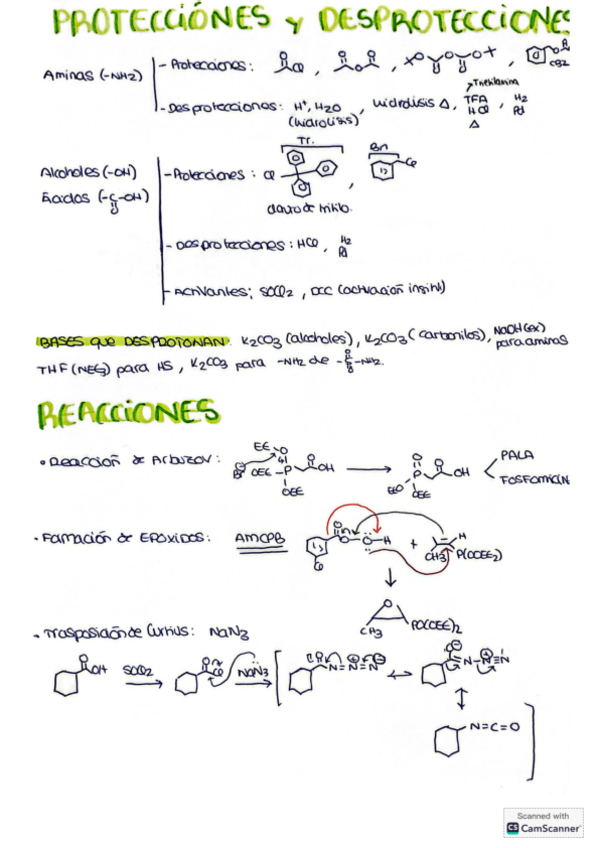 PROTECCIÓNES y DESPROTECCIONES
Aminas (-NH2)
- Protecciones: Cl, O, O O O, O Cl CBZ
- Desprotecciones: H+, H2O (hidrolisis), hidrolisis Δ, TFA HCl Δ, H2 Pd
Trietilamina
Alcoholes (-OH)
Ácidos (-C-OH)
O
- Protecciones: Cl Tr. , Bn Cl
cloruro de tritilo.
- Desprotecciones: HCl, H2 Pd
- Activantes; SOCl2, DCC (activación insitu)
BASES QUE DESPROTONAN: K2CO3 (alcoholes), K2CO3 (carbonilos), NaOH (ex) para aminas
THF (NEG) para HS, K2CO3 para -NH2 de -C-NH2.
O
REACCIONES
• Reacción de Arbuzov:
EE-O
Br OEE-P OH
OEE
O
P OH
EEO OEE
PALA
FOSFOMICIN
• Formación de EPOXIDOS: AMCPB
O O-O-H
Cl
+ H CH3 P(OEE)2
O
CH3 PO(OEE)2
• Trasposición de Curtius: NaN3
O OH SOCl2 O Cl NaN3 N=N=N O N-N≡N
N=C=O
Scanned with
CS CamScanner